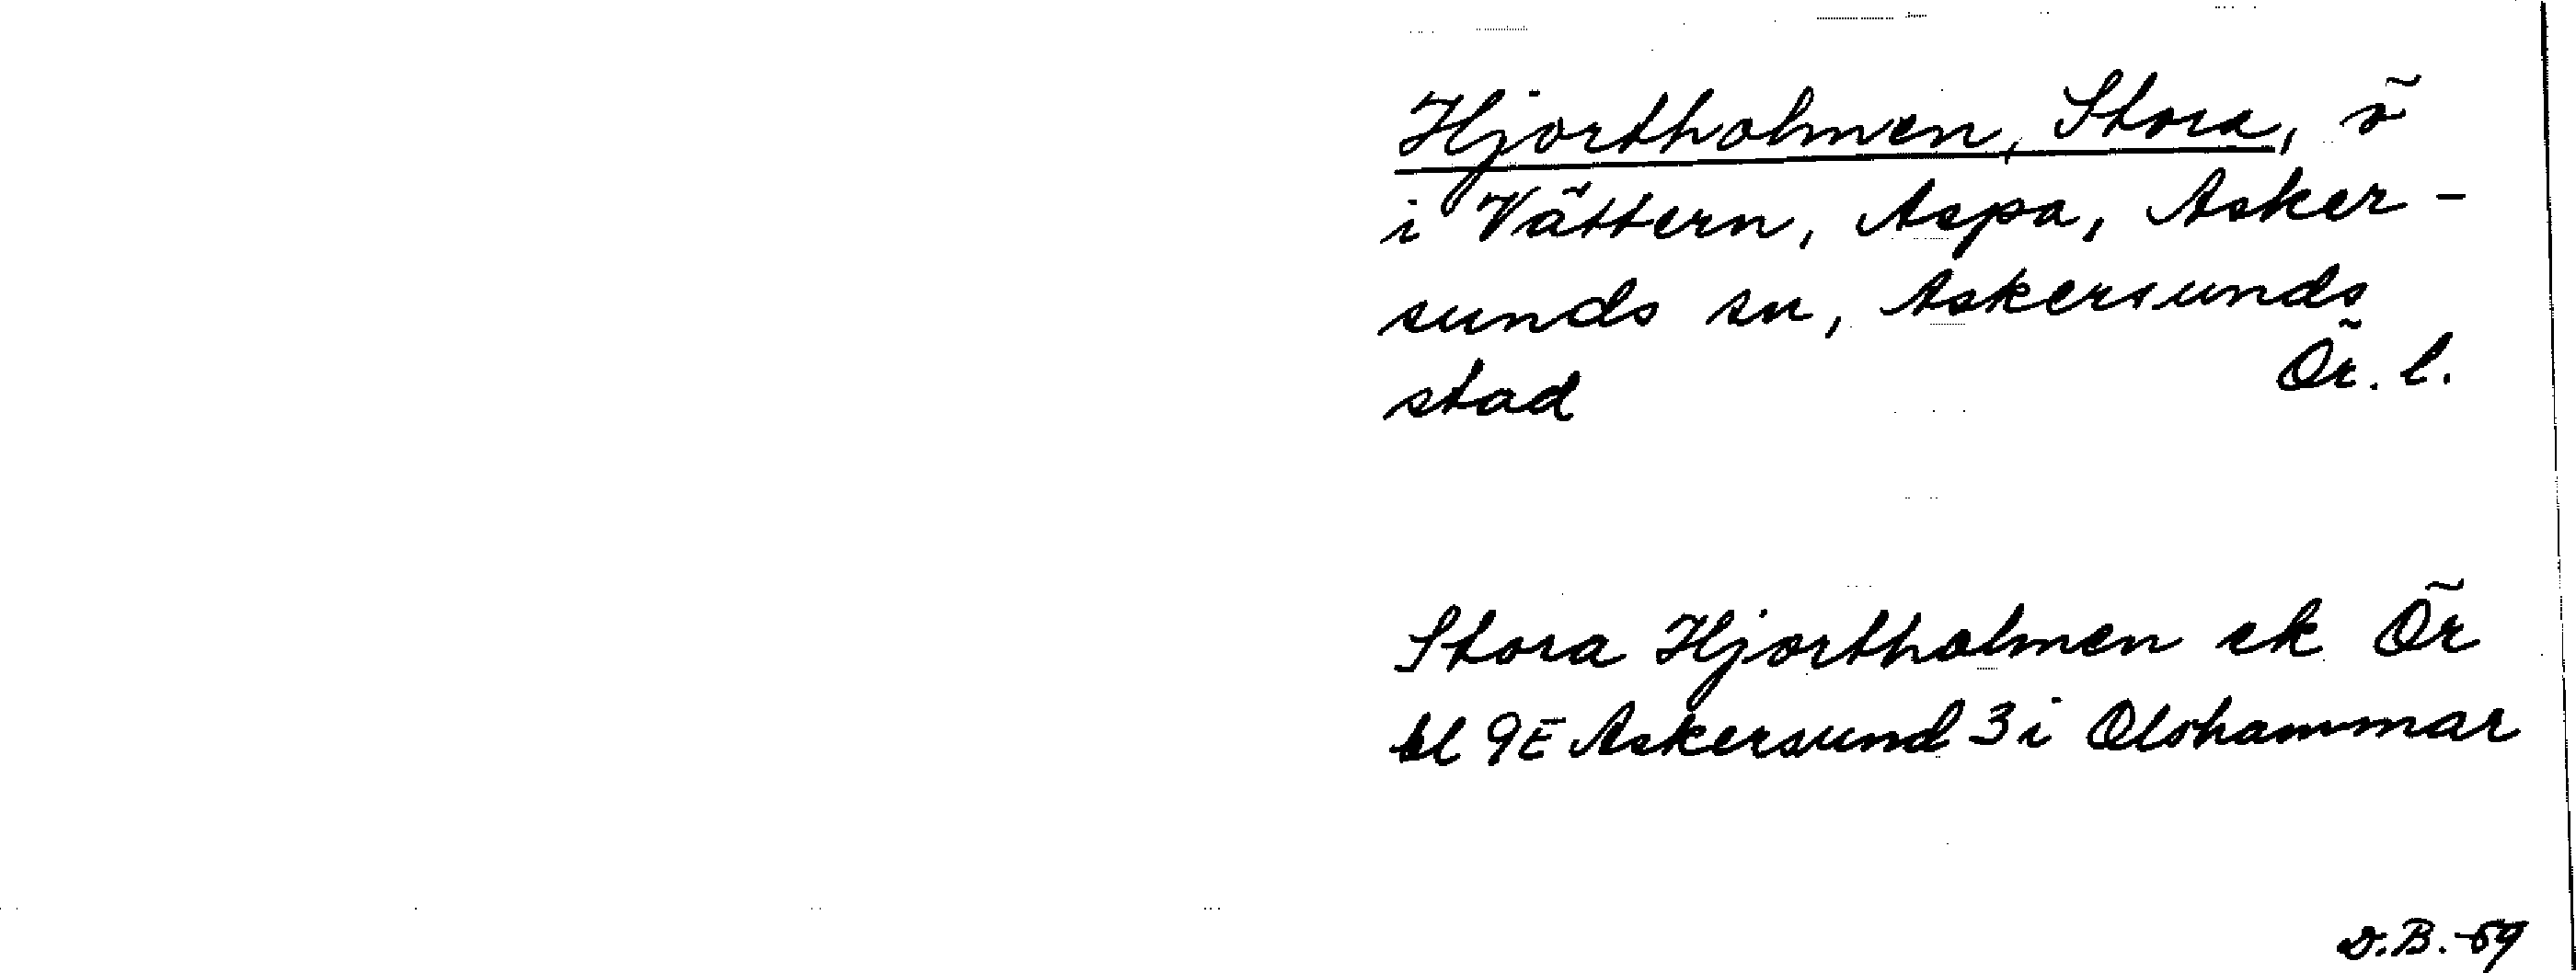 Hjortholmen, Stora, ö
i Vättern, Aspa, Asker-
sunds sn, Askersunds
stad Ör. l.
Stora Hjortholmen ek Ör
bl 9E Askersund 3i Olshammar
D.B.-69